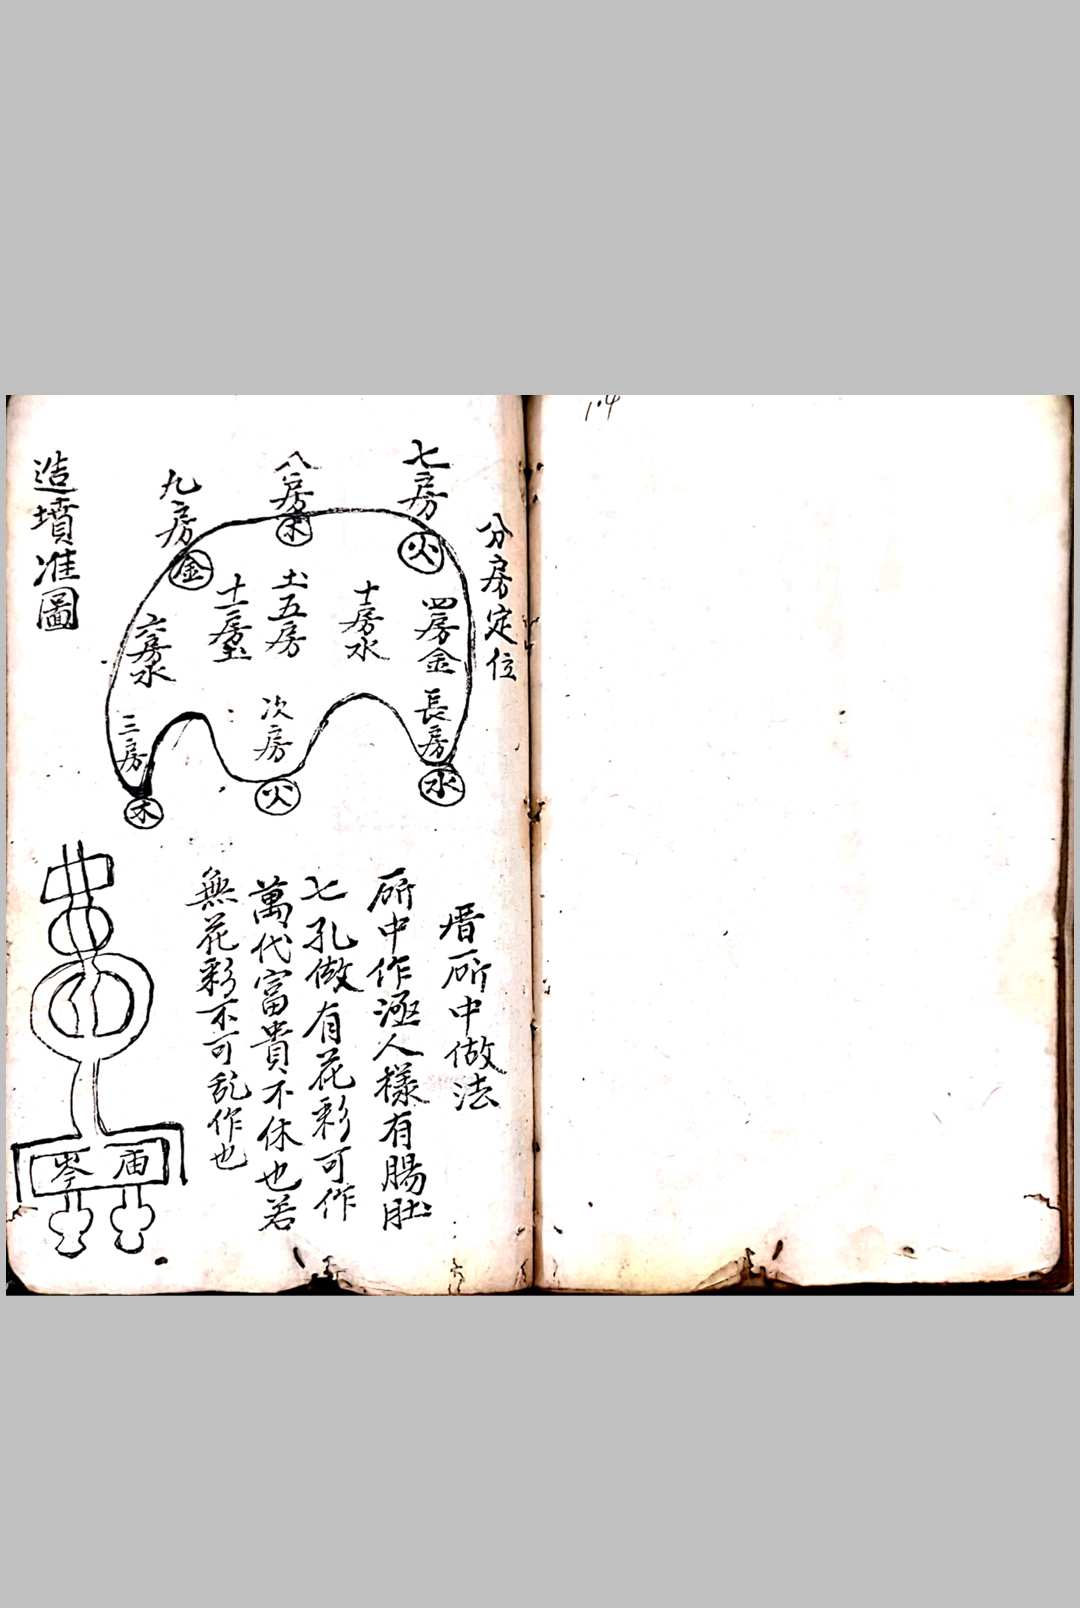 1.4
分房定位
七房
火
八房
木
九房
金
四房金
十房水
土五房
十一房土
六房水
長房
水
次房
火
三房
木
造墳准圖
中做法
中作 人樣有腸肚
七孔做有花彩可作
萬代富貴不休也若
無花彩不可乱作也
庙
岑